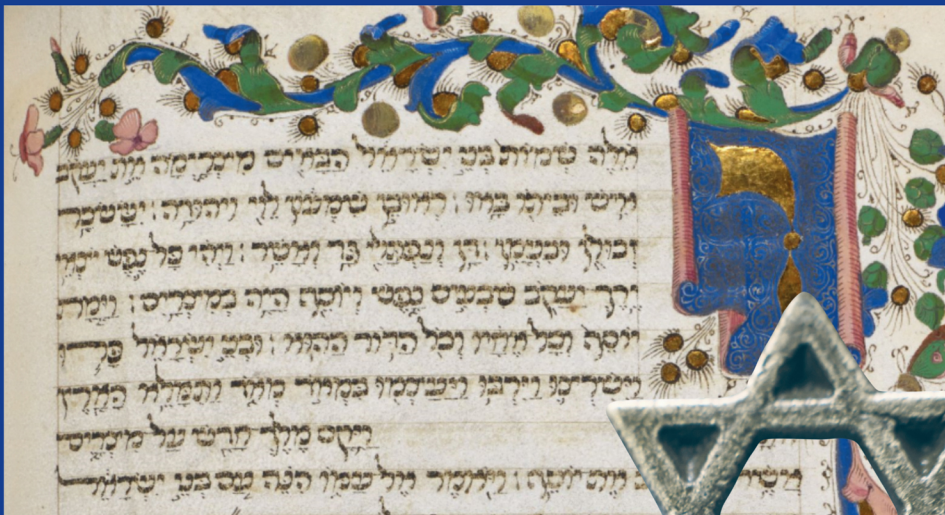 ו
אלה שמות בני ישראל הבאים מצרימה את יעקב
איש וביתו באו : ראובן שמעון לוי ויהודה : יששכר
זבולן ובנימן : דן ונפתלי גד ואשר : ויהי כל נפש יוצאי
ירך יעקב שבעים נפש ויוסף היה במצרים : וימת
יוסף וכל אחיו וכל הדור ההוא : ובני ישראל פרו
וישרצו וירבו ויעצמו במאד מאד ותמלא הארץ
ויקם מלך חדש על מצרים
אשר את יוסף : ויאמר אל עמו הנה עם בני ישראל